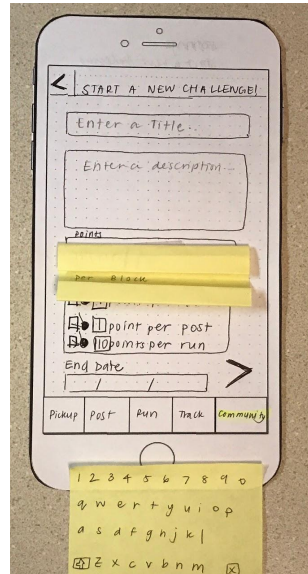 < START A NEW CHALLENGE!
Enter a Title...
Enter a description...
Points
per Block
1 point per post
10 points per run
End Date
/ /
Pickup Post Run Track Community
1 2 3 4 5 6 7 8 9 0
q w e r t y u i o p
a s d f g h j k l
z x c v b n m x